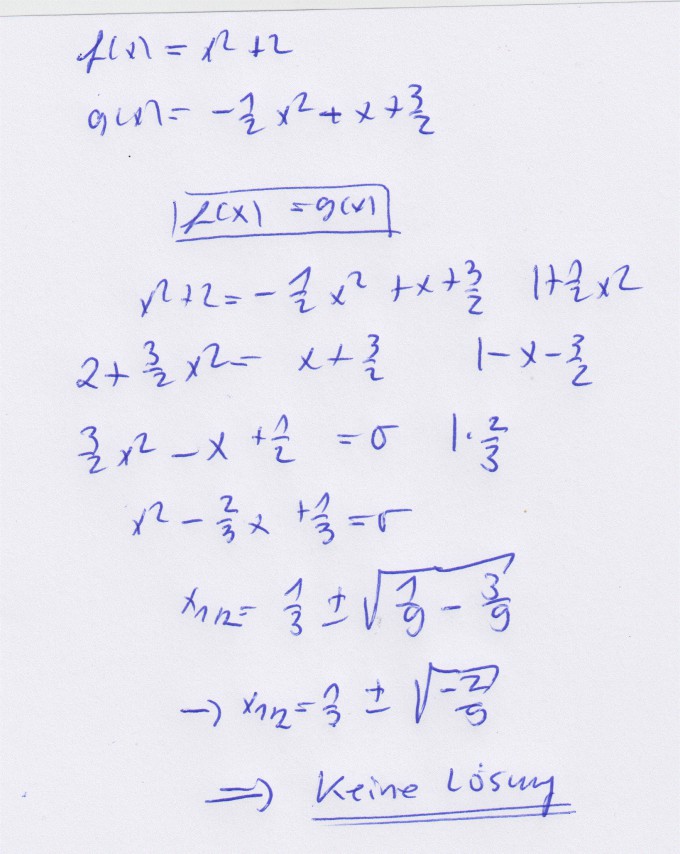 f(x) = x² + 2
g(x) = -1/2 x² + x + 3/2
f(x) = g(x)
x² + 2 = -1/2 x² + x + 3/2 |+1/2 x²
2 + 3/2 x² = x + 3/2 |-x-3/2
3/2 x² - x + 1/2 = 0 |·2/3
x² - 2/3 x + 1/3 = 0
x1/2 = 1/3 ± √(1/9 - 3/9)
→ x1/2 = 1/3 ± √(-2/9)
⇒ Keine Lösung